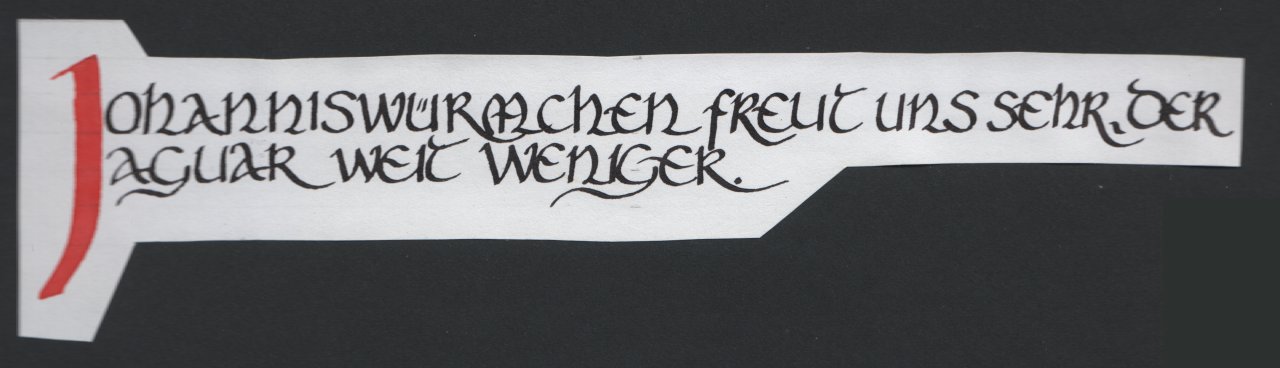 Johanniswürmchen freut uns sehr, der
Jaguar weit weniger.